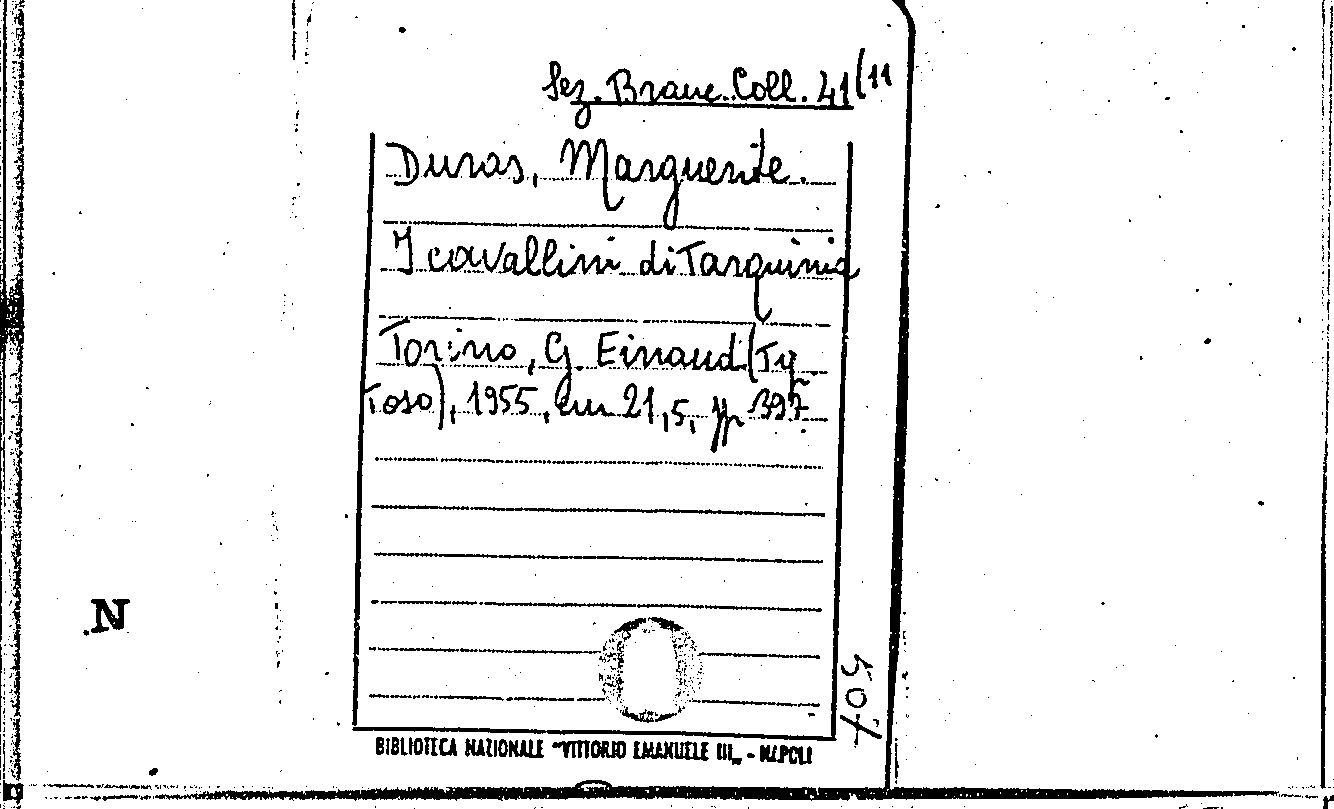 Sez. Branc. Coll. 41(11
Duras, Marguerite.
I cavallini di Tarquinia
Torino, G. Einaudi (Tip.
Toso), 1955, cm 21,5, pp 397.
N
507
BIBLIOTECA NAZIONALE "VITTORIO EMANUELE III„ - NAPOLI